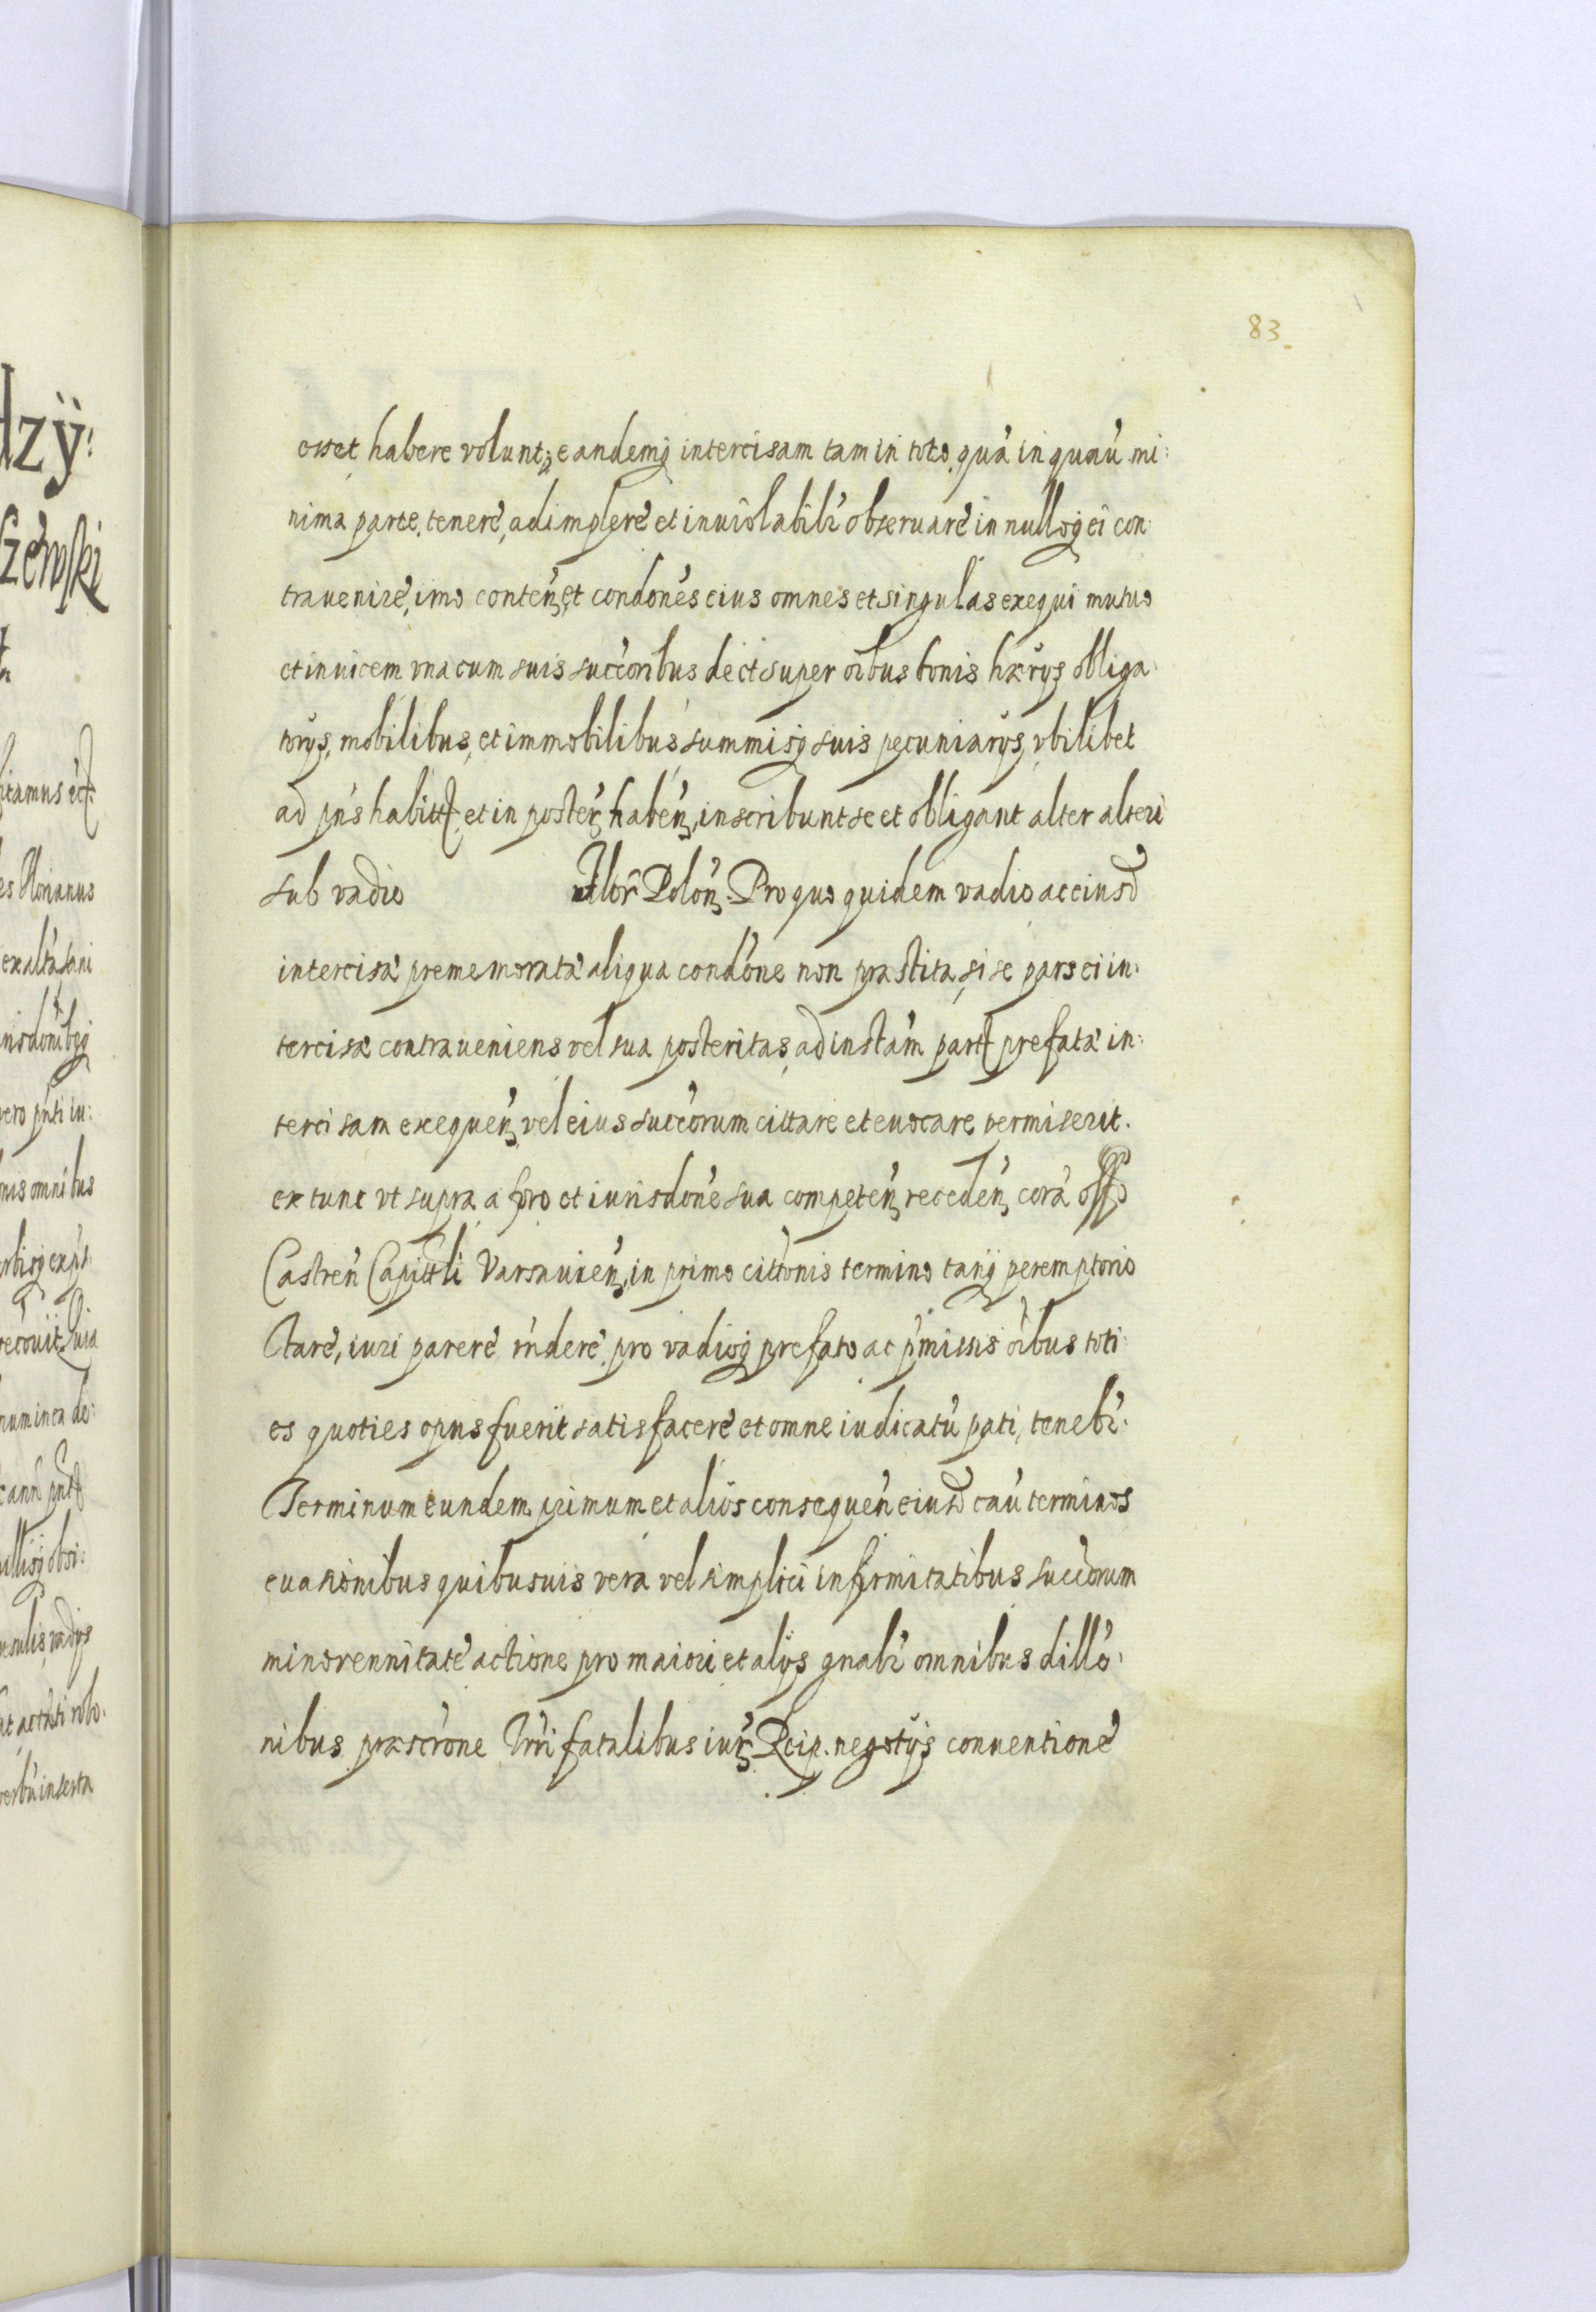 83
esset habere volunt, eandemq intercisam tam in toto quá in quaú mi:
nima parte, teneré, adimpleré et inuiolabilr obseruaré in nullog ei con:
traueniré, imo conteń, et condonés eius omnes et singulas exequi mutuo
et inuicem vna cum suis succoribus de et super oibus bonis hærys obliga:
torys, mobilibus, et immobilibus, summisq suis pecuniarys, vbilibet
ad pńs habitt, et in posteŕ habeń, inscribunt se et obligant alter alteri
sub vadio flor̃ Poloń. Pro quo quidem vadio ac eiusd
intercisæ prememoratæ aliqua condóne non præstita, si se pars ei in:
tercisæ contraueniens vel sua posteritas, ad instám part prefatá in:
tercisam exequeń, vel eius succorum cittare et euocare permiserit.
ex tunc vt supra a foro et iurisdoné sua competeń, recedeń, corá offo
Castreń Capittli Varsauień, in primo cittonis termino tanq peremptorio
staré, iuri pareré rnderé, pro vadioq prefato ac pmissis oibus toti:
es quoties opus fuerit satisfaceré et omne iudicatú pati, tenebr.
Terminum eundem primum et alios consequeń eiusd caú terminos
euasionibus quibusuis vera vel simplici infirmitatibus succorum
minorennitaté actione pro maiori et alys gnalr omnibus dillo:
nibus præscrone Trri fatalibus iuŕ Rcip. negotys conuentioné